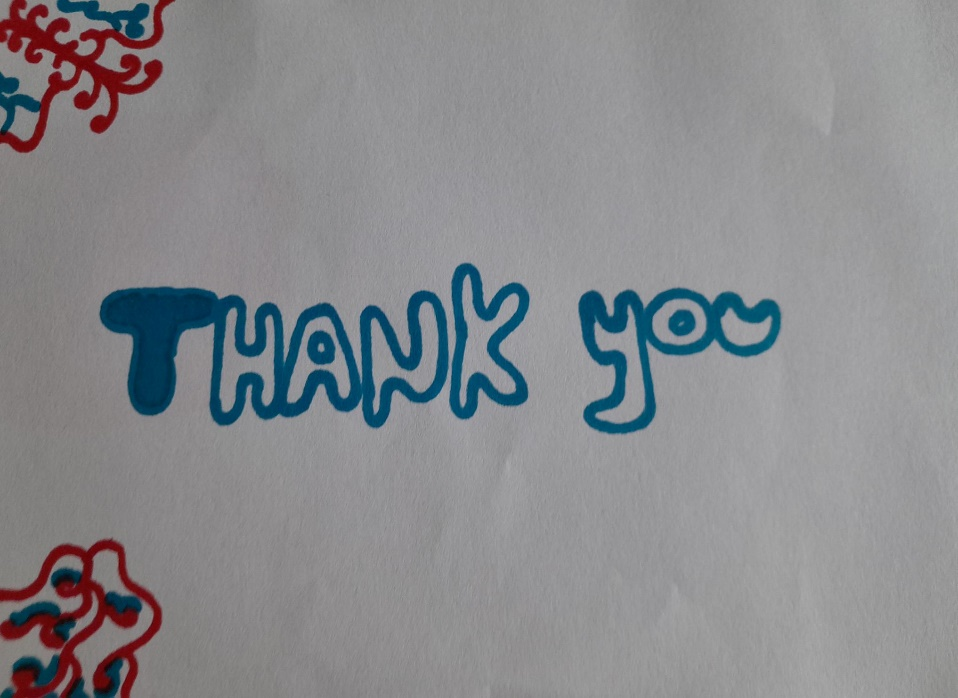 THANK you